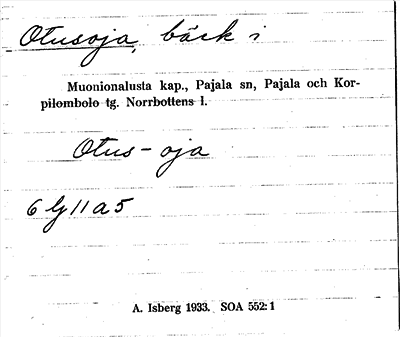 Otusoja, bäck i
Muonionalusta kap., Pajala sn, Pajala och Kor-
pilombolo tg. Norrbottens l.
Otus-oja
6 G 11 a 5
A. Isberg 1933. SOA 552:1